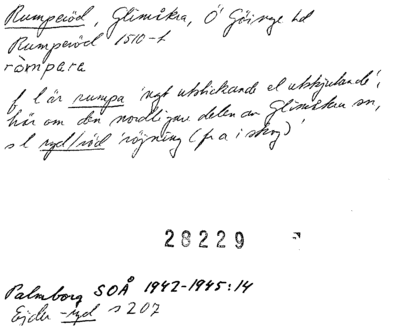 Rumperöd, Glimåkra, Ö Göinge hd
Rumperöd 1510-t
ròmpara
f l är rumpa 'ngt utstickande el utskjutande',
här om den nordligare delen av Glimåkra sn,
s l ryd/röd 'röjning (fr a i skog)'
28229
Palmborg SOÅ 1942-1945:14
Ejder -ryd s 207